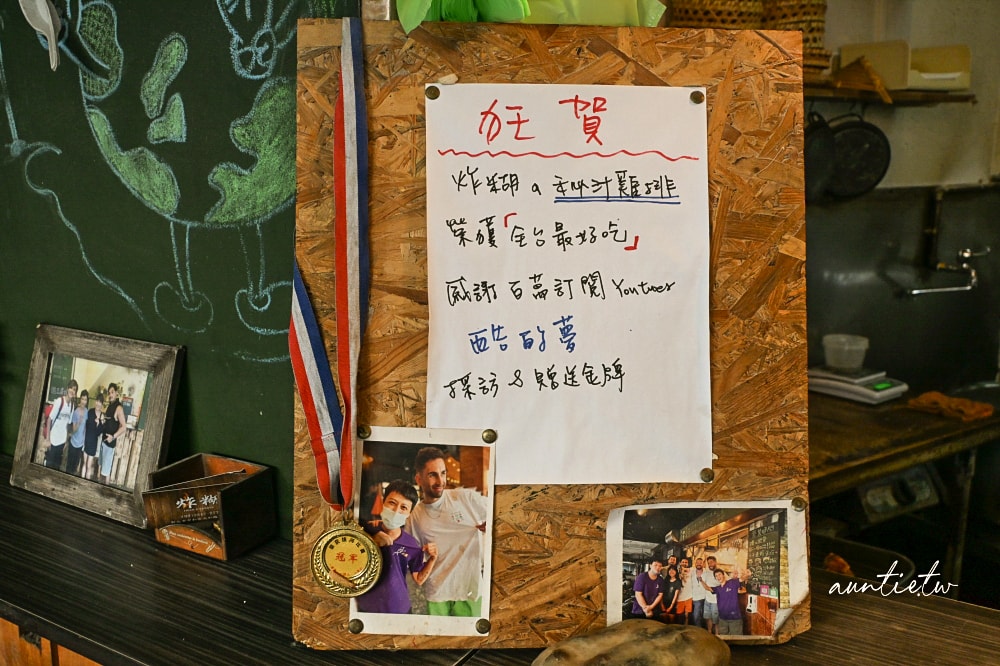 狂賀
炸糊a秘汁雞排
榮獲「全台最好吃」
感謝百萬訂閱Youtuber
酷的夢
採訪&贈送金牌
炸糊
冠軍
auntie.tw